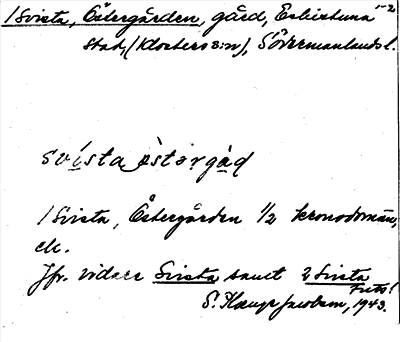 1 Svista, Östergården, gård, Eskilstuna
stad, (Klosters s:n), Södermanlands l.
svista östərgàḍ
1 Svista, Östergården 1/2 kronodomän,
etc.
Jfr. vidare Svista samt 2 Svista
Forts!
S. Haugs Jacobson, 1943.